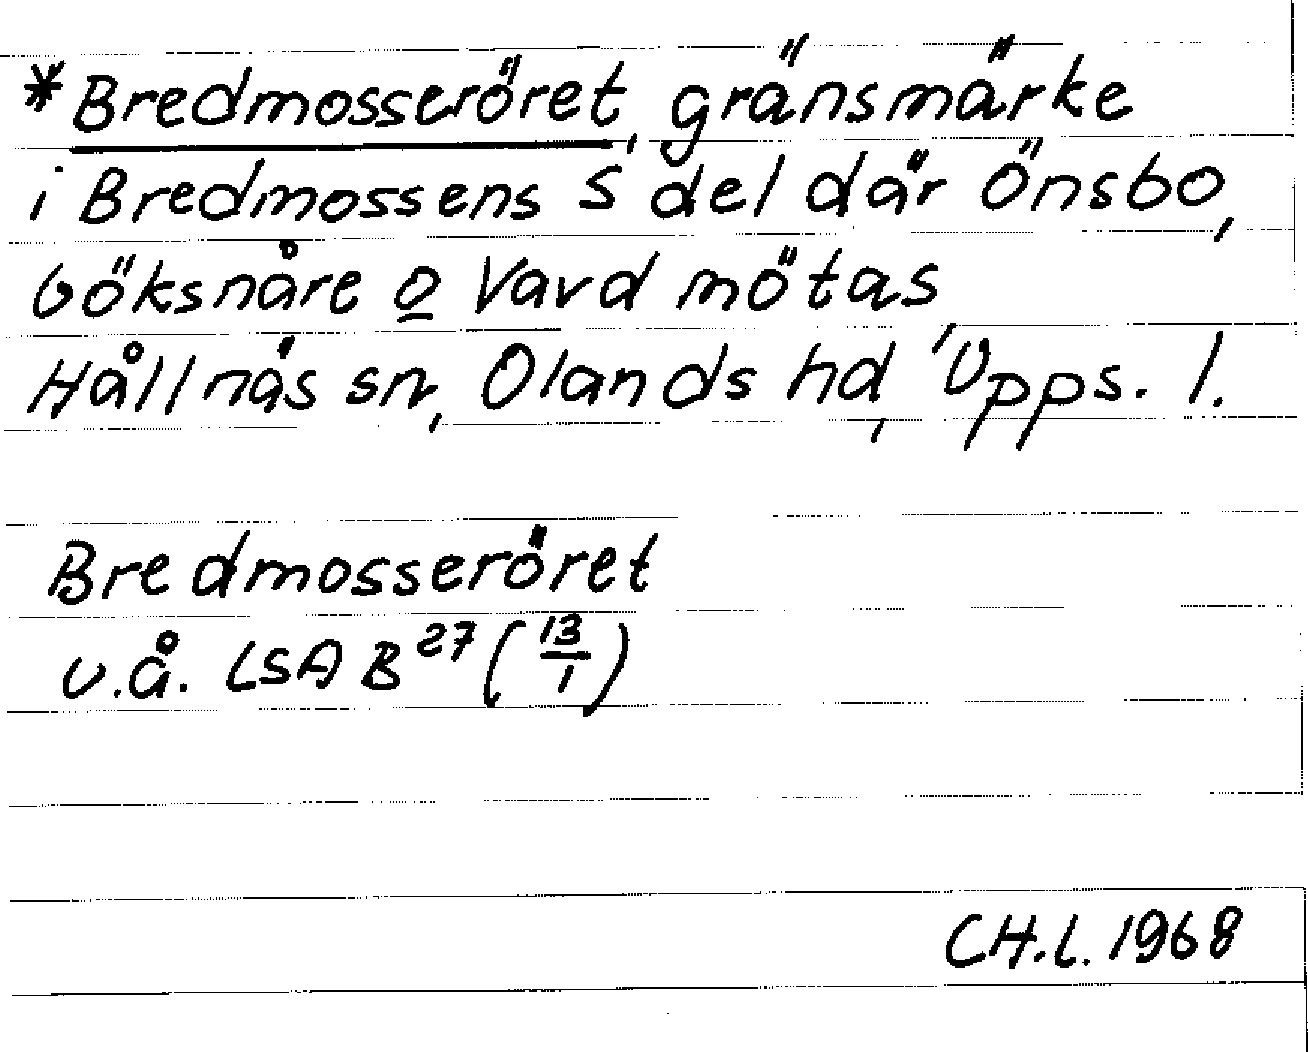 *Bredmosseröret, gränsmärke
i Bredmossens S del där Önsbo,
Göksnåre o Vavd mötas,
Hållnäs sn, Olands hd, Upps. l.
Bredmosseröret
u.å. LSA B27 (13/1)
CH.L. 1968